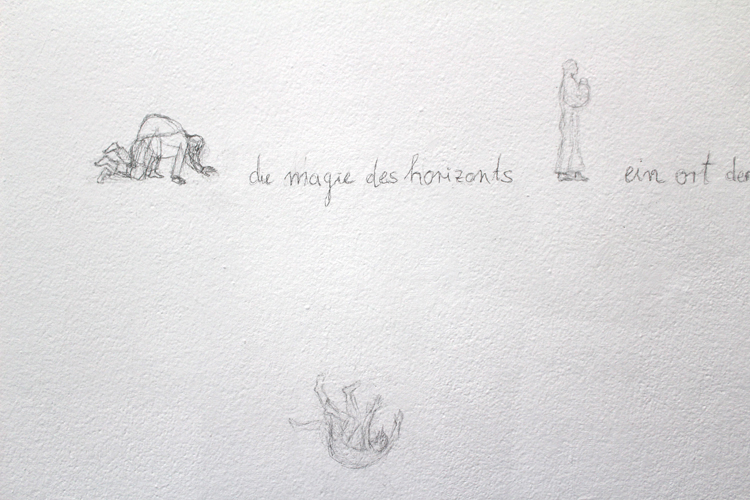 die magie des horizonts ein ort der